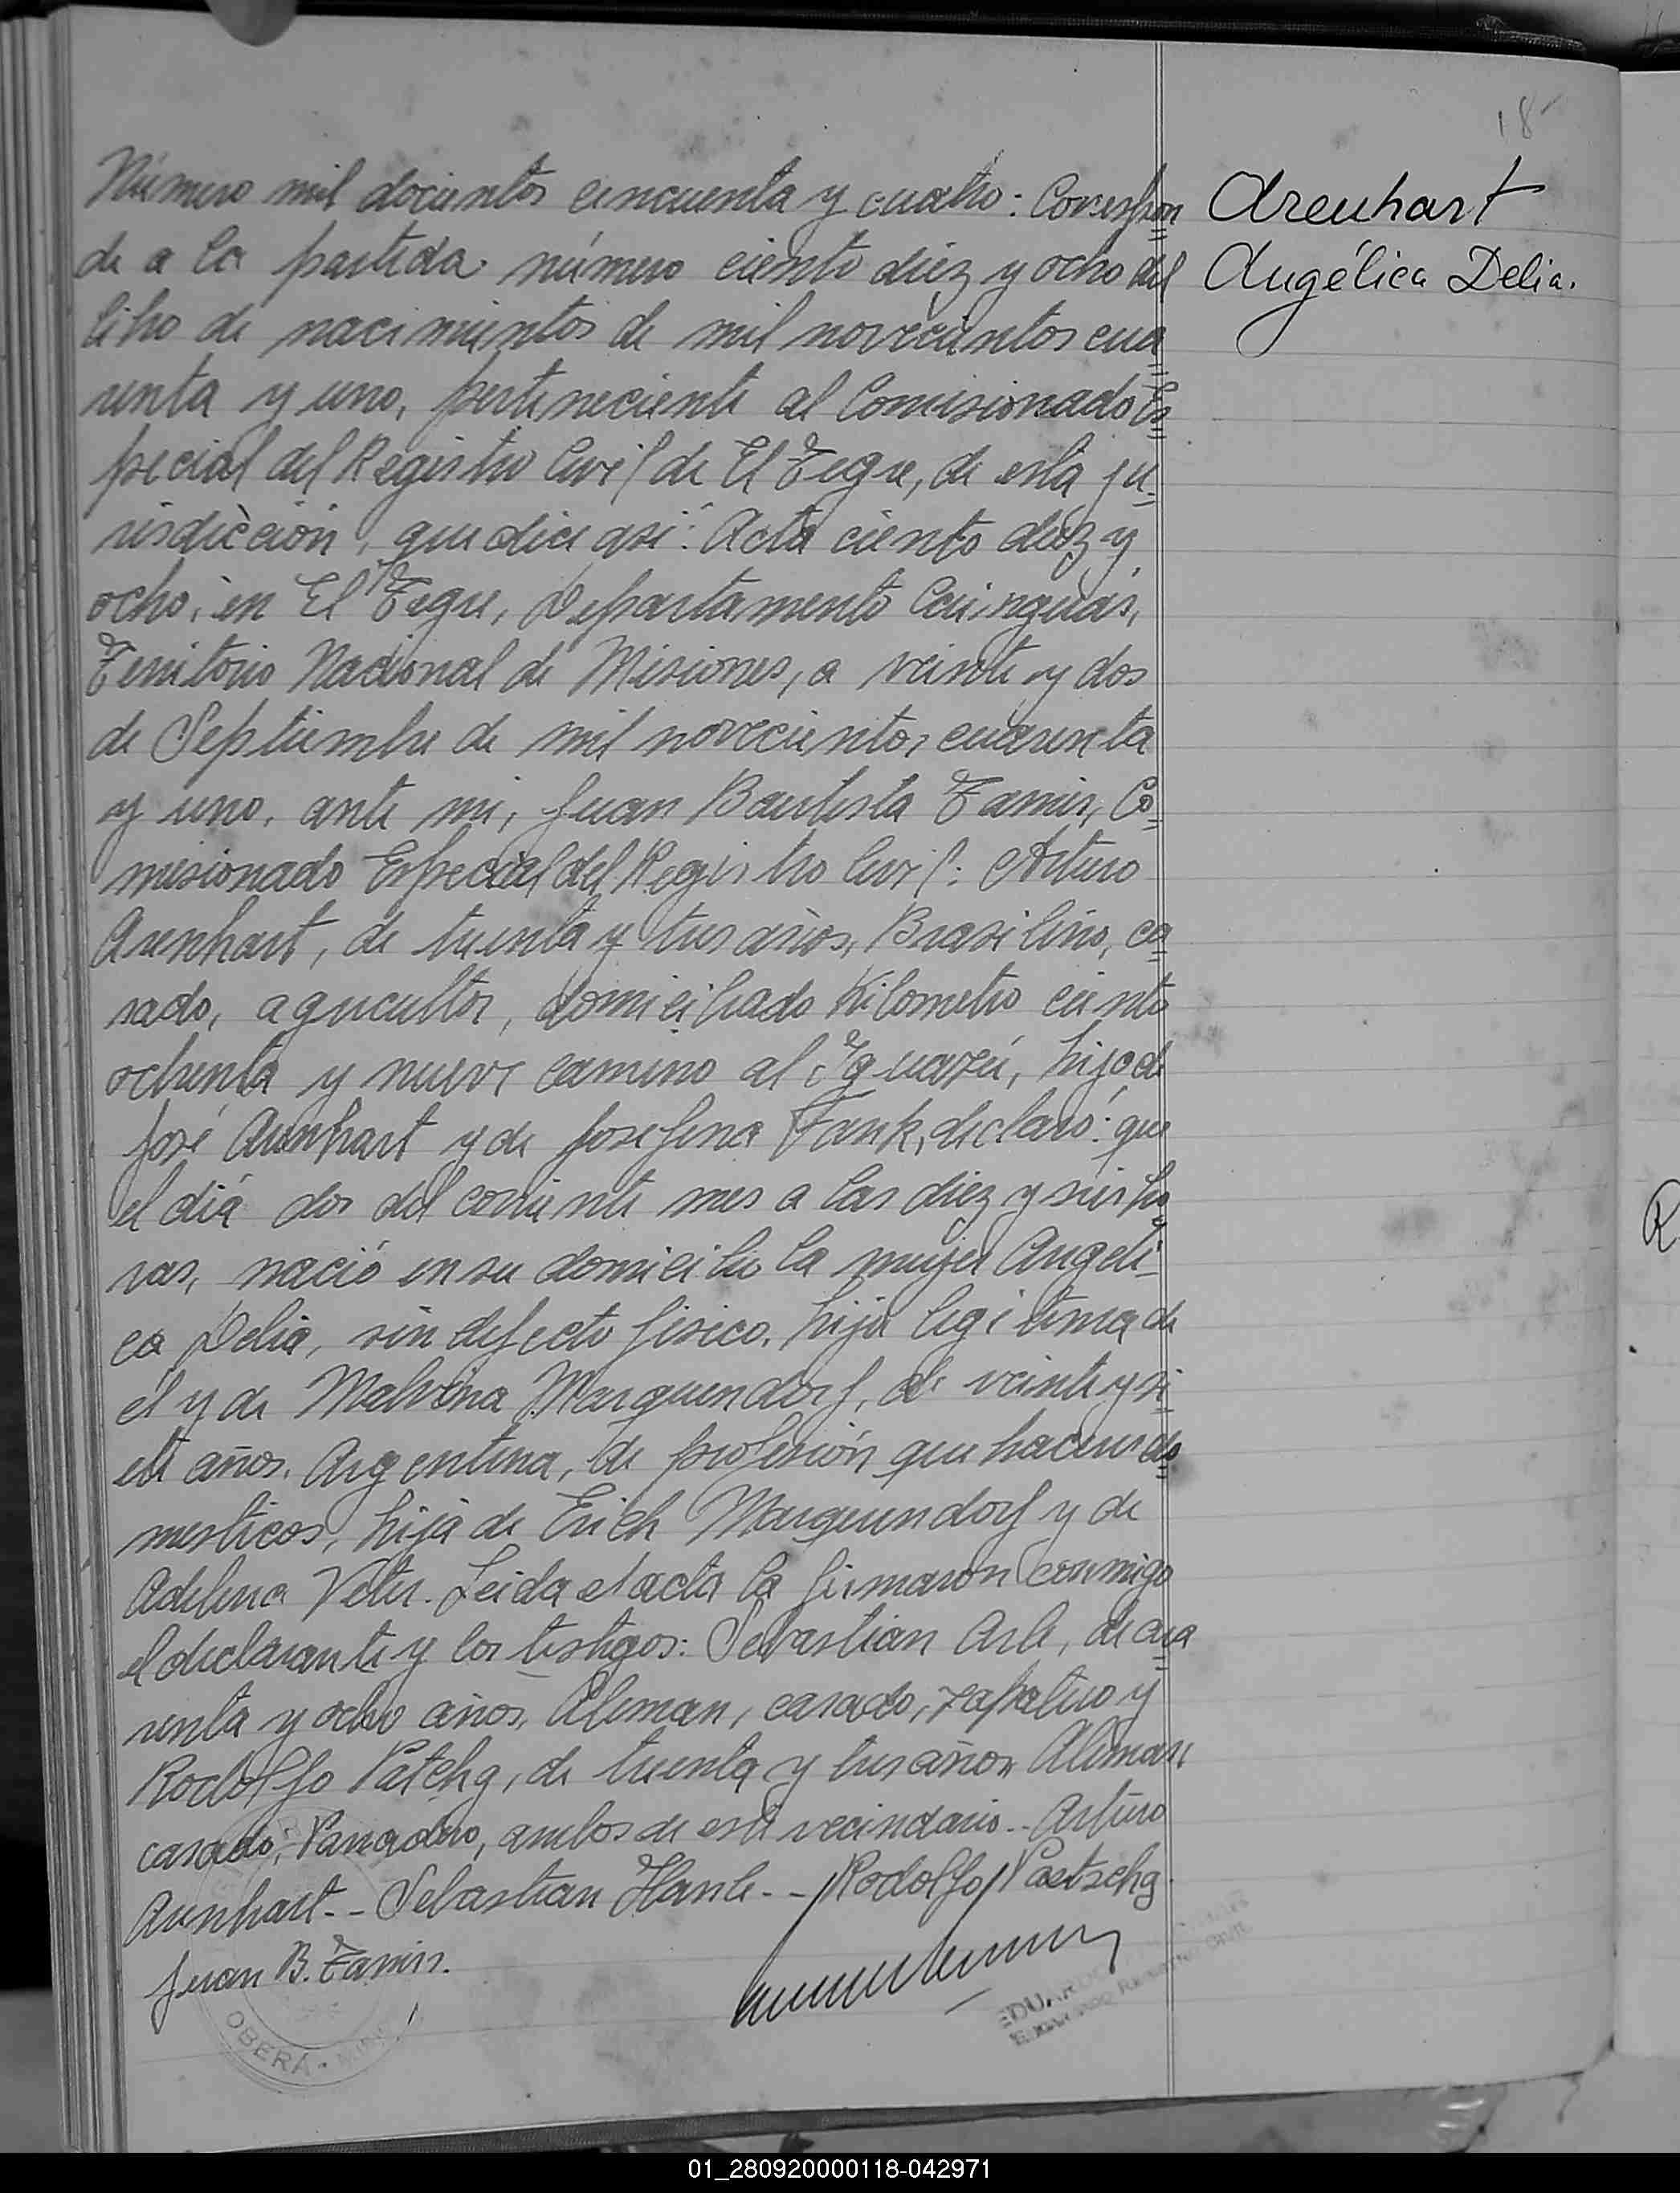 18
Arenhart
Angélica Delia.
Número mil docientos cincuenta y cuatro: Correspon
de a la partida número ciento diez y ocho del
libro de nacimientos de mil novecientos cua
renta y uno, perteneciente al Comisionado Es
pecial del Registro Civil de El Tegre, de esta ju-
risdicción, que dice asi: Acta ciento diez y
ocho, en El Tegre, Departamento Cainguás,
Territorio Nacional de Misiones, a veinte y dos
de Septiembre de mil novecientos cuarenta
y uno, ante mi, Juan Bautista Tamis, Co-
misionado Especial del Registro Civil: Arturo
Arenhart, de treinta y tres años, Brasilino, ca
sado, agricultor, domiciliado Kilometro ciento
ochenta y nueve camino al Iguazú, hijo de
José Arenhart y de Josefina Fank, declaró: que
el día dos del corriente mes a las diez y seis ho
ras, nació en su domicilio la mujer Angeli-
ca Delia, sin defecto fisico, hija legitima de
él y de Malvina Marquendorf, de veinte y si-
ete años, Argentina, de profesión que haceres do
mesticos, hija de Erich Marquendorf y de
Adelina Veter. Leida el acta la firmaron conmigo
el declarante y los testigos: Sebastian Arle, de cua
renta y ocho años, Aleman, casado, zapatero y
Rodolfo Patchg, de treinta y tres años Aleman
casado, Panadero, ambos de este vecindario.- Arturo
Arenhart.- Sebastian Hanle.- Rodolfo Paetschg
Juan B. Tamis.
EDUAR
OBERÁ - MI
01_280920000118-042971